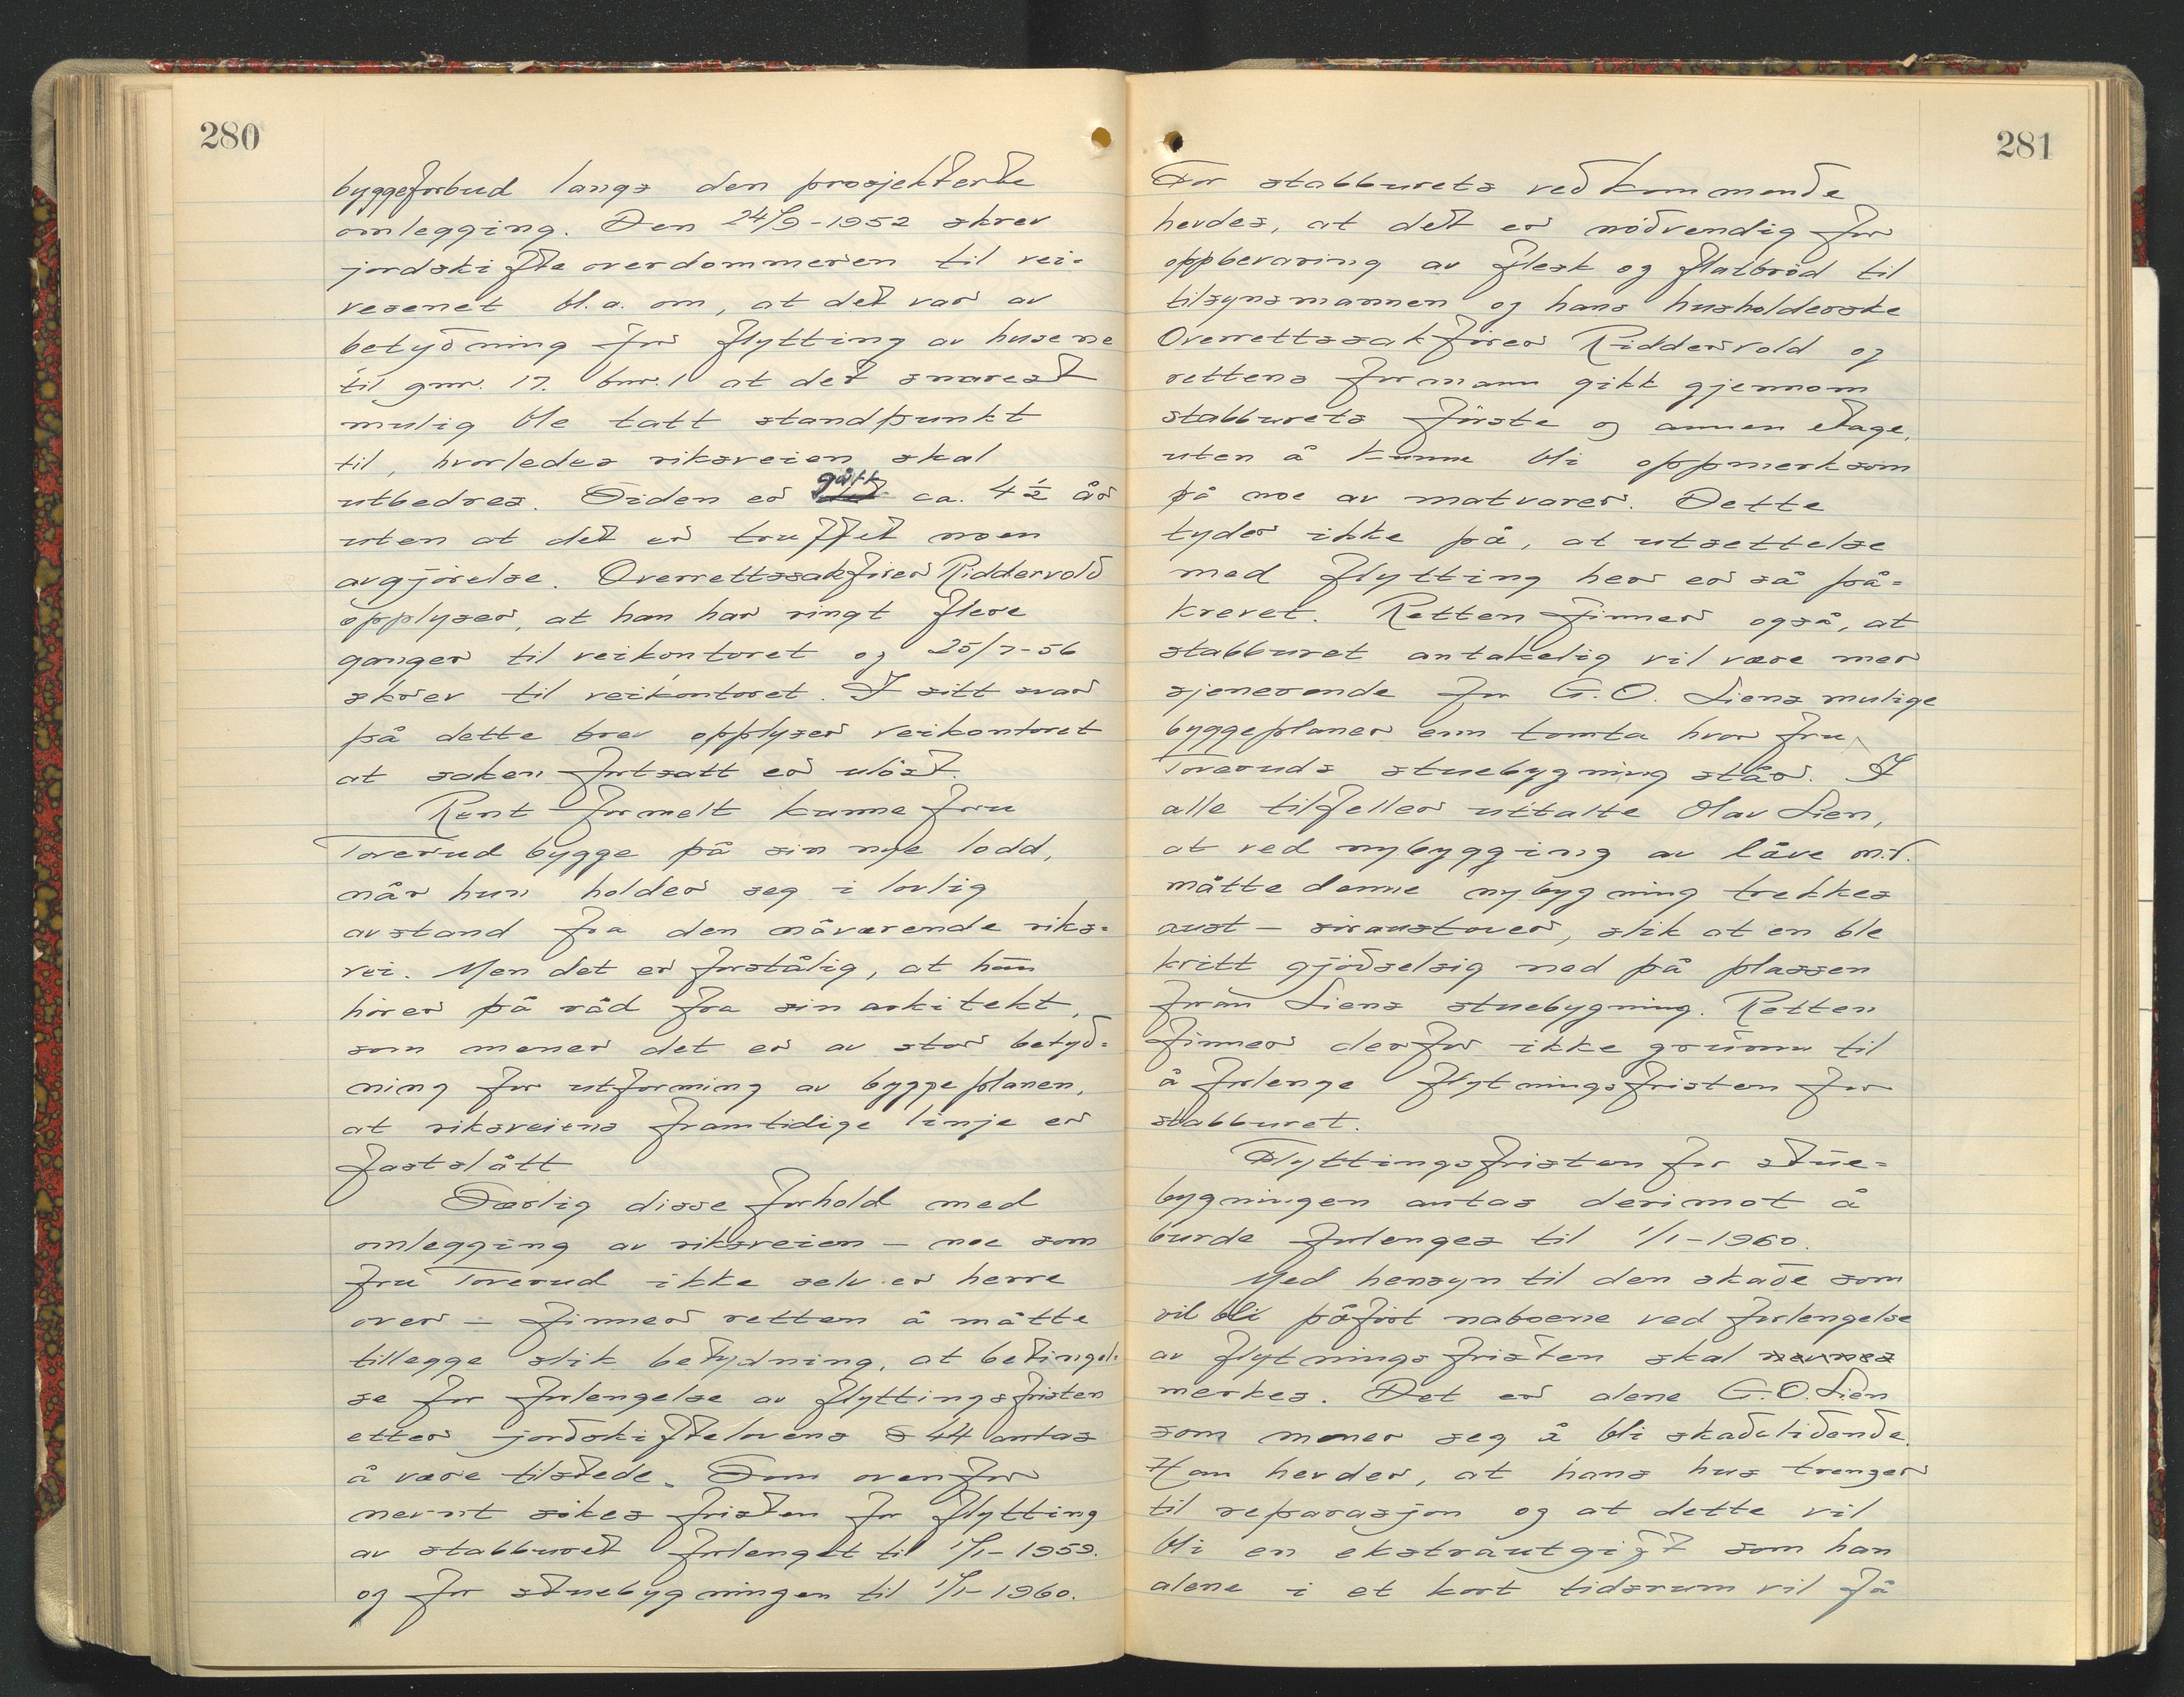 280
byggeforbud langs den prosjekterte
omlegging. Den 24/9-1952 skrev
jordskifteoverdommeren til vei-
vesenet bl.a. om, at det var av
betydning for flytting av husene
til gnr. 17. bnr. 1 at det snarest
mulig ble tatt standpunkt
til, hvorledes riksveien skal
utbedres. Tiden er gått ca. 4 1/2 år
uten at det er truffet noen
avgjörelse. Overrettssakförer Riddervold
opplyser, at han har ringt flere
ganger til veikontoret og 25/7-56
skrev til veikontoret. I sitt svar
på dette brev opplyser veikontoret
at saken fortsatt er ulöst.
Rent formelt kunne fru
Toverud bygge på sin nye lodd,
når hun holder seg i lovlig
avstand fra den nåværende riks-
vei. Men det er forståelig, at hun
hörer på råd fra sin arkitekt,
som mener det er av stor betyd-
ning for utforming av byggeplanen,
at riksveiens framtidige linje er
fastslått
Særlig disse forhold med
omlegging av riksveien – noe som
fru Toverud ikke selv er herre
over – finner retten å måtte
tillegge slik betydning, at betingel-
se for forlengelse av flyttingsfristen
etter jordskiftelovens § 44 antas
å være tilstede. Som ovenfor
nevnt sökes fristen for flytting
av stabburet forlenget til 1/1-1959.
og for stuebygningen til 1/1-1960.
281
For stabburets vedkommende
hevdes, at det er nödvendig for
oppbevaring av flesk og flatbröd til
tilsynsmannen og hans husholderske
Overrettssakförer Riddervold og
rettens formann gikk gjennom
stabburets förste og annen etage,
uten å kunne bli oppmerksom
på noe av matvarer. Dette
tyder ikke på, at utsettelse
med flytting her er så på-
krevet. Retten finner også, at
stabburet antakelig vil være mer
sjenerende for G.O. Liens mulige
byggeplaner enn tomta hvor fru
Toveruds stuebygning står. I
alle tilfeller uttalte Olav Lien,
at ved nybygging av låve m.v.
måtte denne nybygning trekkes
aust – söraustover, slik at en ble
kvitt gjödselsig ned på plassen
fran Liens stuebygning. Retten
finner derfor ikke grunn til
å forlenge flytningsfristen for
stabburet.
Flyttingsfristen for stue-
bygningen antas derimot å
burde forlenges til 1/1-1960.
Med hensyn til den skade som
vil bli påfört naboene ved forlengelse
av flytningsfristen skal nevnes
merkes. Det er alene G.O. Lien
som mener seg å bli skadelidende.
Han hevder, at hans hus trenger
til reparasjon og at dette vil
bli en ekstrautgift som han
alene i et kort tidsrum vil få